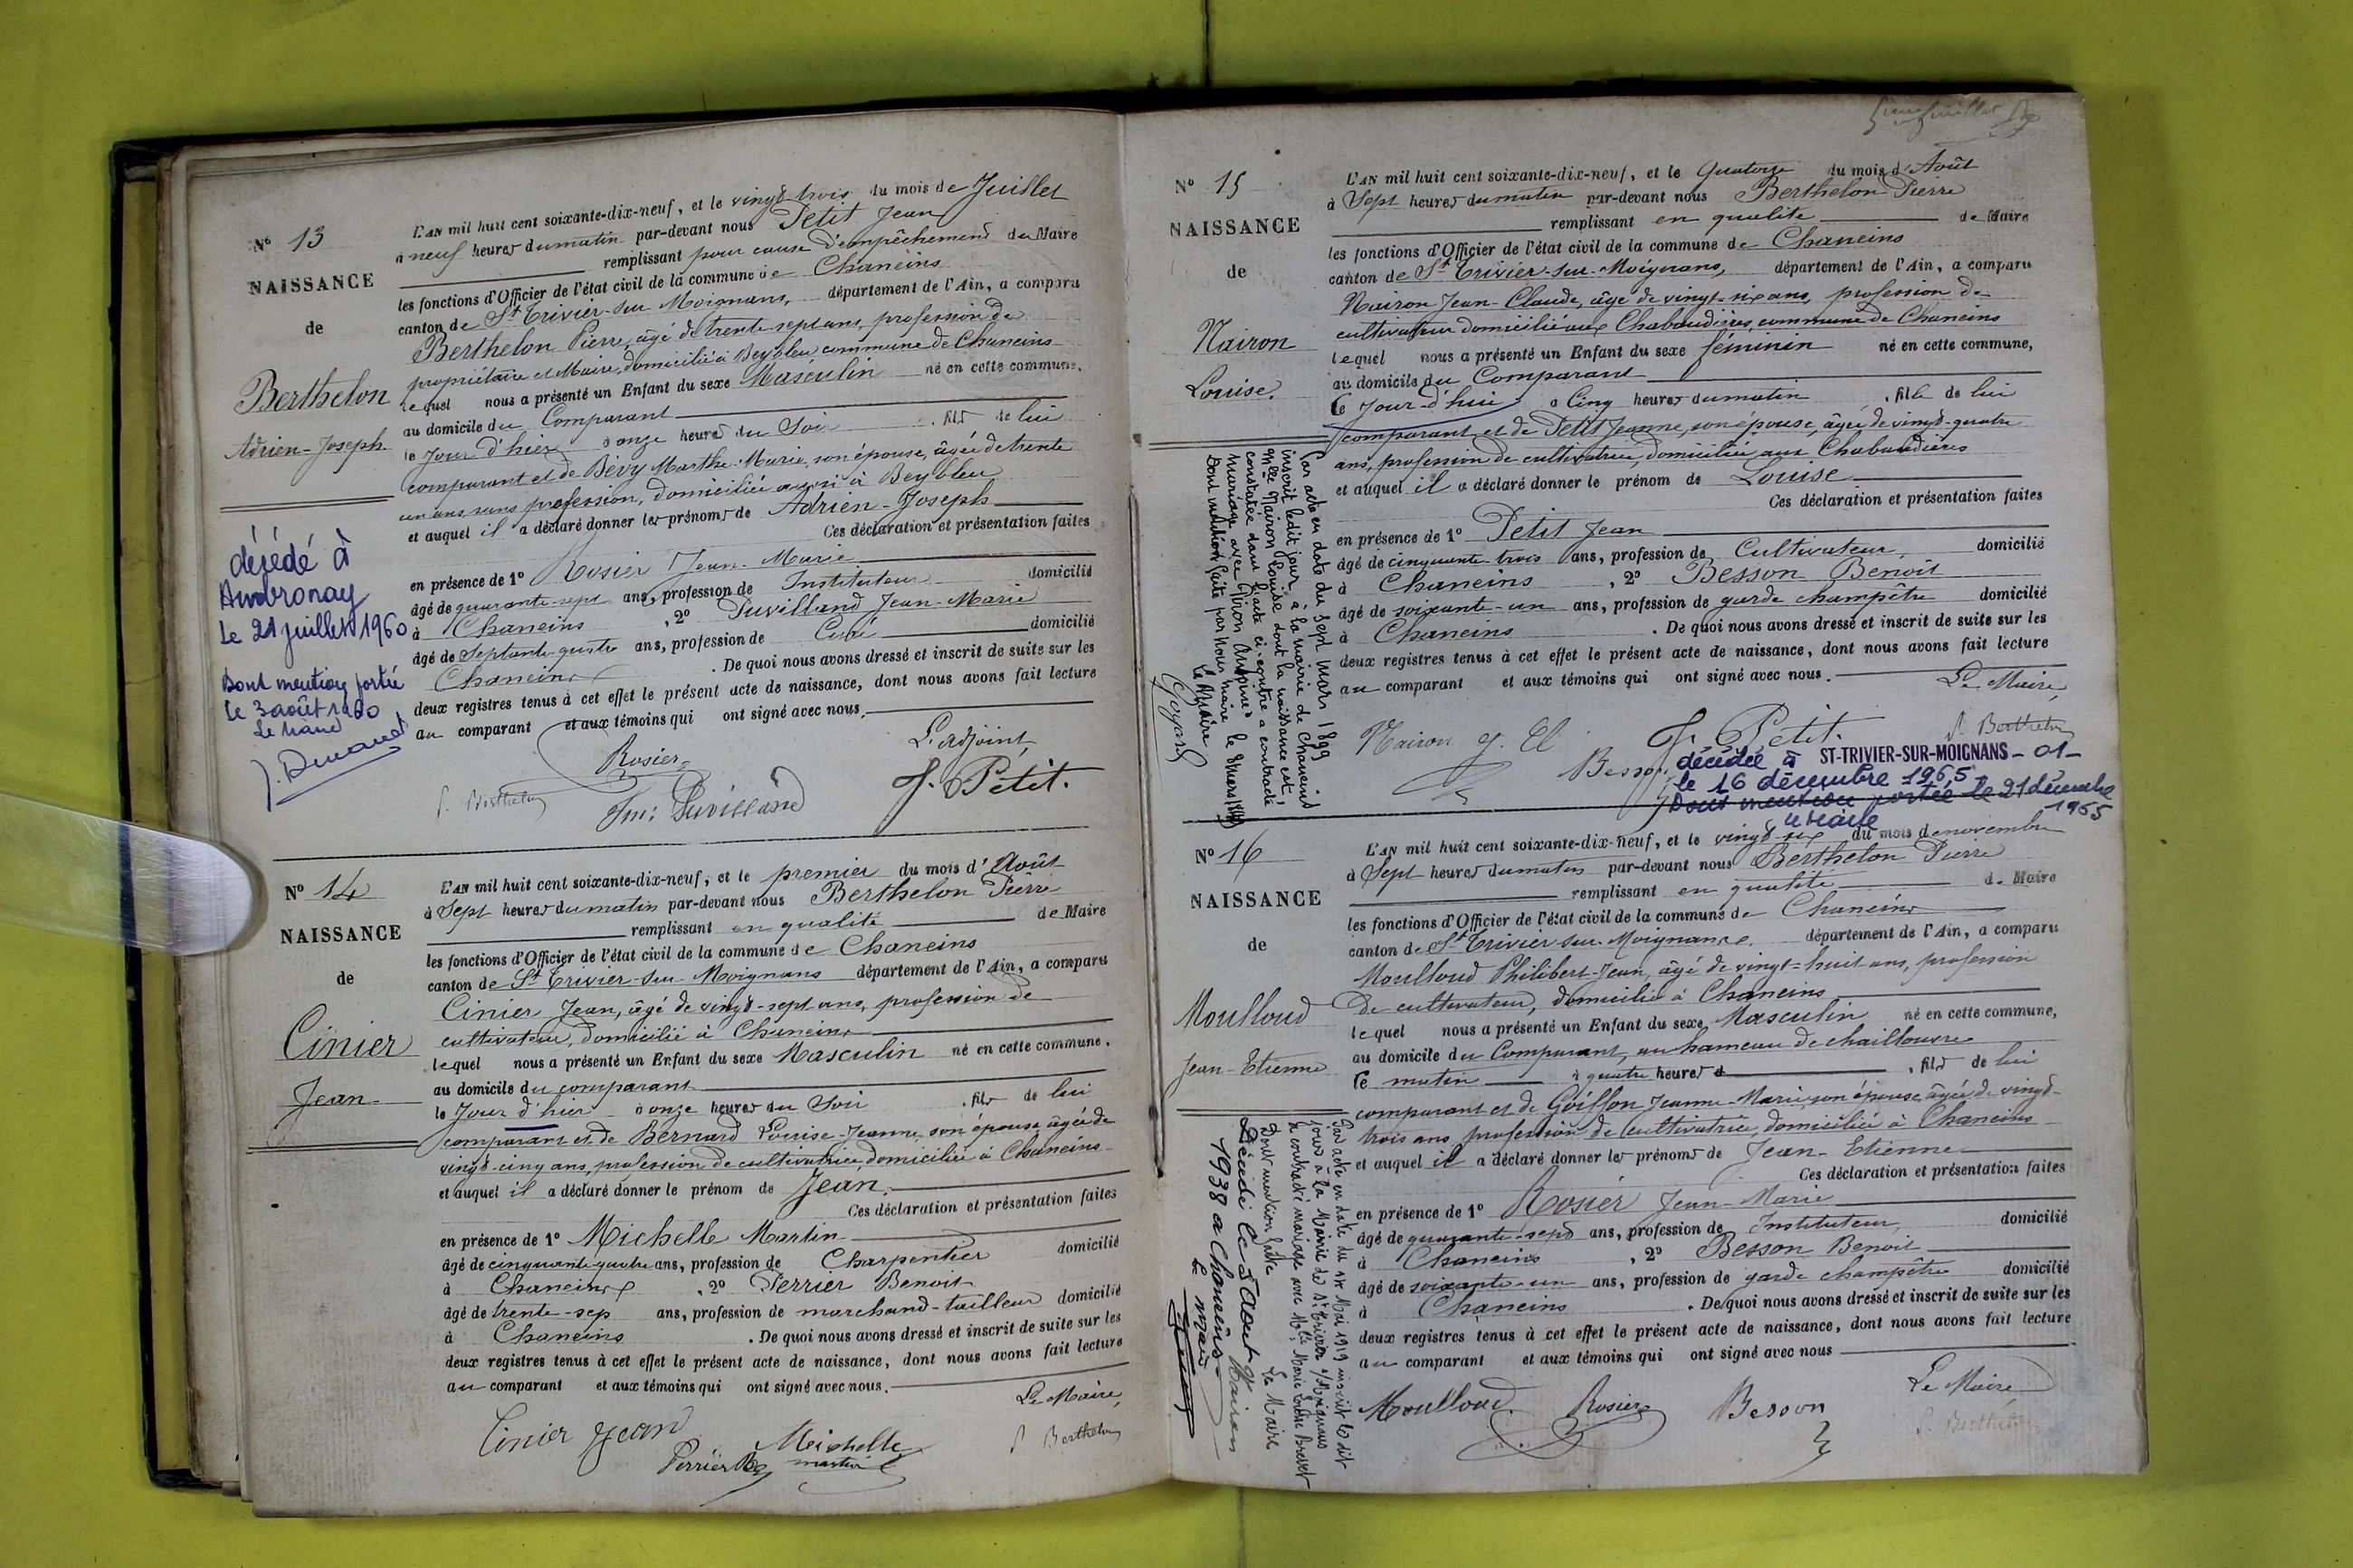 N° 13
NAISSANCE
de
Berthelon
Adrien-Joseph
L'AN mil huit cent soixante-dix-neuf, et le vingt trois du mois de Juillet
à neuf heures du matin par-devant nous Petit Jean
remplissant pour cause d'empêchement du Maire
les fonctions d'Officier de l'état civil de la commune de Chaneins
canton de St Trivier-sur-Moignans, département de l'Ain, a comparu
Berthelon Pierre, âgé de trente sept ans, profession de
propriétaire et Maire, domicilié à Beybleu, commune de Chaneins
lequel nous a présenté un Enfant du sexe Masculin né en cette commune,
au domicile du Comparant
le Jour d'hier à onze heures du Soir, fils de lui
comparant et de Bévy Marthe-Marie, son épouse, âgée de trente
un ans sans profession, domiciliée aussi à Beybleu
et auquel il a déclaré donner les prénoms de Adrien-Joseph
Ces déclaration et présentation faites
en présence de 1° Rosier Jean-Marie
âgé de quarante-sept ans, profession de Instituteur domicilié
à Chaneins, 2° Puvilland Jean-Marie
âgé de Septante-quatre ans, profession de Curé domicilié
Chaneins. De quoi nous avons dressé et inscrit de suite sur les
deux registres tenus à cet effet le présent acte de naissance, dont nous avons fait lecture
au comparant et aux témoins qui ont signé avec nous.
L'adjoint,
Rosier
P. Berthelon
Puvilland
J. Petit.
décédé à
Ambronay
Le 21 juillet 1960
Dont mention portée
le 3 août 1960
Le Maire
N° 14
NAISSANCE
de
Cinier
Jean
L'AN mil huit cent soixante-dix-neuf, et le premier du mois d'Août
à Sept heures du matin par-devant nous Berthelon Pierre
remplissant en qualité de Maire
les fonctions d'Officier de l'état civil de la commune de Chaneins
canton de St Trivier-sur-Moignans département de l'Ain, a comparu
Cinier Jean, âgé de vingt-sept ans, profession de
cultivateur, domicilié à Chaneins
lequel nous a présenté un Enfant du sexe Masculin né en cette commune,
au domicile du comparant
le Jour d'hier à onze heures du Soir, fils de lui
comparant et de Bernard Louise-Jeanne, son épouse, âgée de
vingt-cinq ans, profession de cultivatrice, domiciliée à Chaneins
et auquel il a déclaré donner le prénom de Jean.
Ces déclaration et présentation faites
en présence de 1° Michelle Martin
âgé de cinquante-quatre ans, profession de Charpentier domicilié
à Chaneins, 2° Perrier Benoit
âgé de trente-sep ans, profession de marchand-tailleur domicilié
à Chaneins. De quoi nous avons dressé et inscrit de suite sur les
deux registres tenus à cet effet le présent acte de naissance, dont nous avons fait lecture
au comparant et aux témoins qui ont signé avec nous.
Le Maire,
Cinier Jean
Michelle
martin
Perrier
P. Berthelon
N° 15
NAISSANCE
de
Nairon
Louise.
L'AN mil huit cent soixante-dix-neuf, et le Quatorze du mois d'Août
à Sept heures du matin par-devant nous Berthelon Pierre
remplissant en qualité de Maire
les fonctions d'Officier de l'état civil de la commune de Chaneins
canton de St Trivier-sur-Moignans, département de l'Ain, a comparu
Nairon Jean-Claude, âgé de vingt-six ans, profession de
cultivateur domicilié aux Chabaudières, commune de Chaneins
lequel nous a présenté un Enfant du sexe féminin né en cette commune,
au domicile du Comparant
le Jour-d'hui à Cinq heures du matin, fille de lui
comparant et de Petit Jeanne, son épouse, âgée de vingt-quatre
ans, profession de cultivatrice, domiciliée aux Chabaudières
et auquel il a déclaré donner le prénom de Louise
Ces déclaration et présentation faites
en présence de 1° Petit Jean
âgé de cinquante trois ans, profession de Cultivateur, domicilié
à Chaneins, 2° Besson Benoit
âgé de soixante-un ans, profession de garde champêtre domicilié
à Chaneins. De quoi nous avons dressé et inscrit de suite sur les
deux registres tenus à cet effet le présent acte de naissance, dont nous avons fait lecture
au comparant et aux témoins qui ont signé avec nous.
Le Maire,
Nairon J. Cl
Besson
J. Petit.
P. Berthelon
décédée à ST-TRIVIER-SUR-MOIGNANS - 01 -
le 16 décembre 1965
Dont mention portée le 21 décembre
1965
Le Maire
Par acte en date du Sept mars 1899
inscrit ledit jour à la mairie de Chaneins
Mlle Nairon Louise dont la naissance est
constatée dans l'acte ci-contre a contracté
mariage avec
Dont mention faite par Nous, maire le 8 mars 1899
Le Maire
N° 16
NAISSANCE
de
Moulloud
Jean-Etienne
L'AN mil huit cent soixante-dix-neuf, et le vingt-six du mois de novembre
à Sept heures du matin par-devant nous Berthelon Pierre
remplissant en qualité de Maire
les fonctions d'Officier de l'état civil de la commune de Chaneins
canton de St Trivier-sur-Moignans. département de l'Ain, a comparu
Moulloud Philibert-Jean, âgé de vingt-huit ans, profession
de cultivateur, domicilié à Chaneins
lequel nous a présenté un Enfant du sexe Masculin né en cette commune,
au domicile du Comparant, au hameau de
le matin à quatre heures, fils de lui
comparant et de Goiffon Jeanne-Marie, son épouse, âgée de vingt-
trois ans, profession de cultivatrice, domiciliée à Chaneins
et auquel il a déclaré donner les prénoms de Jean-Etienne
Ces déclaration et présentation faites
en présence de 1° Rosier Jean-Marie
âgé de quarante-sept ans, profession de Instituteur, domicilié
à Chaneins, 2° Besson Benoit
âgé de soixante-un ans, profession de garde champêtre domicilié
à Chaneins. De quoi nous avons dressé et inscrit de suite sur les
deux registres tenus à cet effet le présent acte de naissance, dont nous avons fait lecture
au comparant et aux témoins qui ont signé avec nous
Le Maire
Moulloud. Rosier Besson
P. Berthelon
Par acte en date du Mai 1919 inscrit le dit
jour à la Mairie de St Trivier s/Moignans
a contracté mariage avec Mlle Marie
Dont mention faite
Le Maire
Décédé le 5 Aout
1938 a Chaneins
Le maire